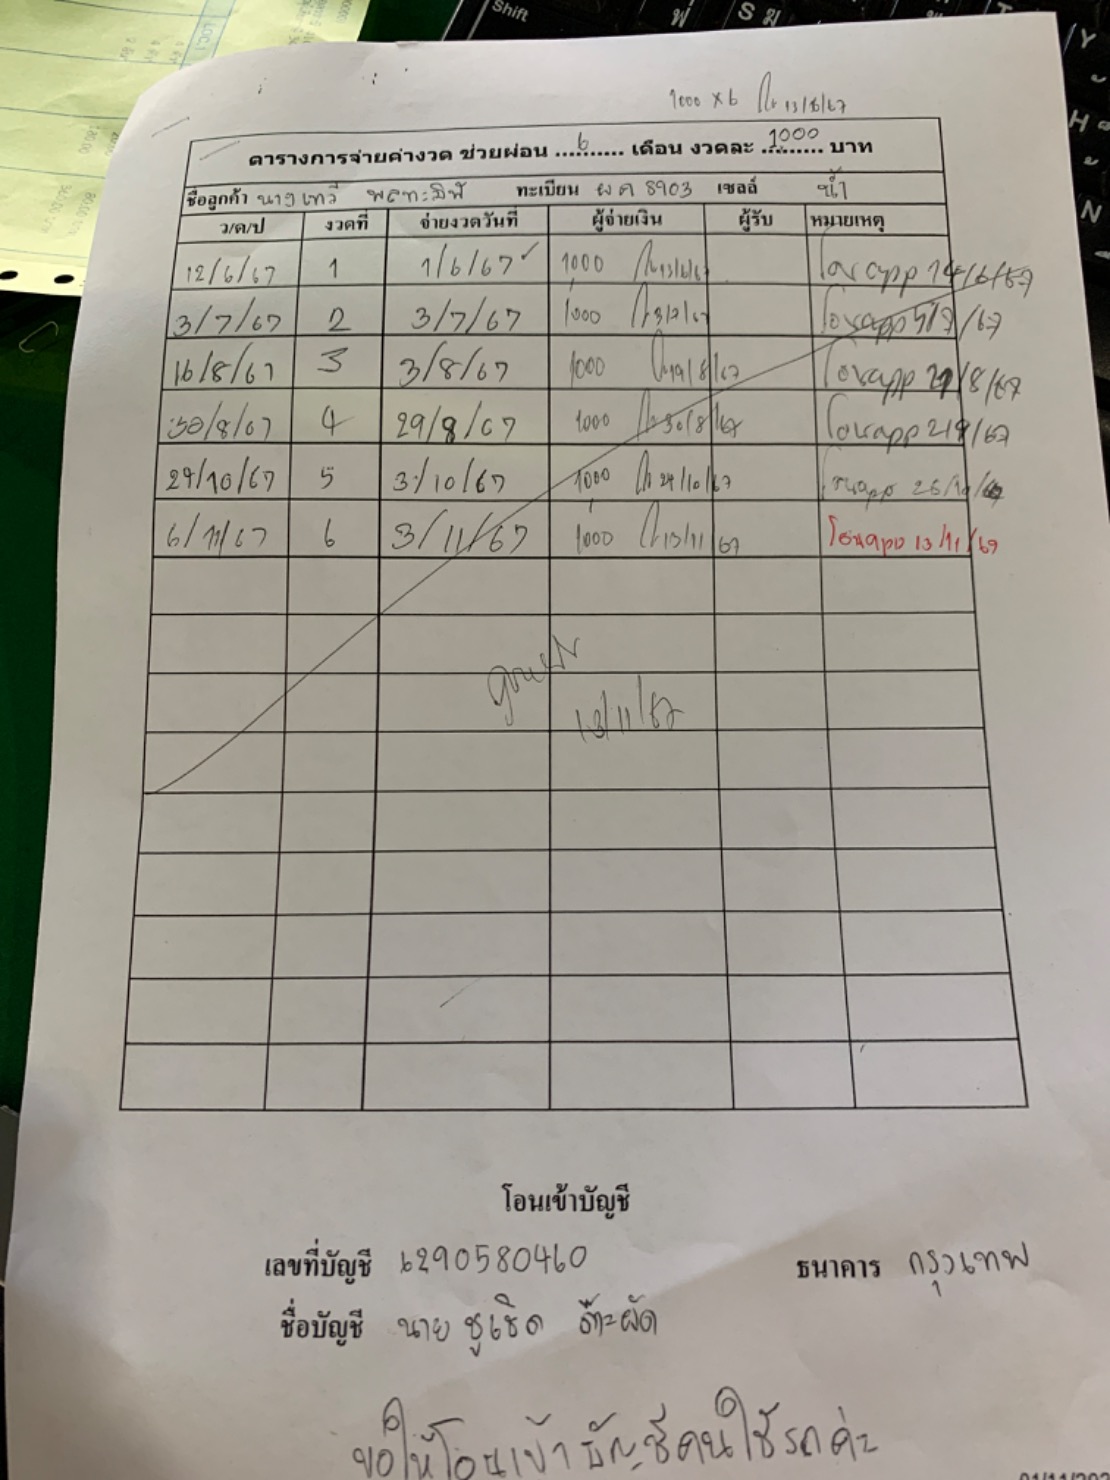 Shift
1000 x 6 13/6/67
ตารางการจ่ายค่างวด ช่วยผ่อน ....6...... เดือน งวดละ ..1000.. บาท
ชื่อลูกค้า นางเทวี ทะเบียน ผค 8903 เซลล์ น้ำ
ว/ด/ป งวดที่ จ่ายงวดวันที่ ผู้จ่ายเงิน ผู้รับ หมายเหตุ
12/6/67 1 1/6/67 1000 13/6/67 โอน app 14/6/67
3/7/67 2 3/7/67 1000 3/7/67 โอน app /7/67
16/8/67 3 3/8/67 1000 19/8/67 โอน app 21/8/67
30/8/67 4 29/8/67 1000 30/8/67 โอน app 2/9/67
24/10/67 5 3/10/67 1000 24/10/67 โอน app
6/11/67 6 3/11/67 1000 13/11/67 โอน app 13/11/67
13/11/67
โอนเข้าบัญชี
เลขที่บัญชี 6290580460 ธนาคาร กรุงเทพ
ชื่อบัญชี นาย ชูเชิด ต๊ะผัด
ขอให้โอนเข้าบัญชีคนใช้รถค่ะ